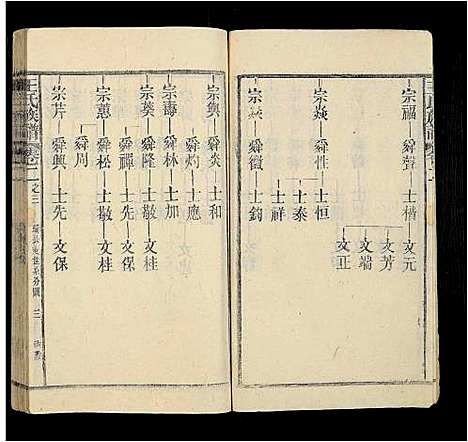 宗福 舜聲 士楷 文元
文芳
文端
文正
宗焱 舜性 士恒
士泰
士祥
宗焱 舜徵 士鈞
宗輿 舜炎 士和
舜灼 士應
宗壽 舜林 士加
宗葵 舜隆 士敬 文桂
舜禪 士先 文保
宗蕙 舜松 士敬 文桂
舜周
宗芹 舜興 士先 文保
王氏族譜 卷二之三